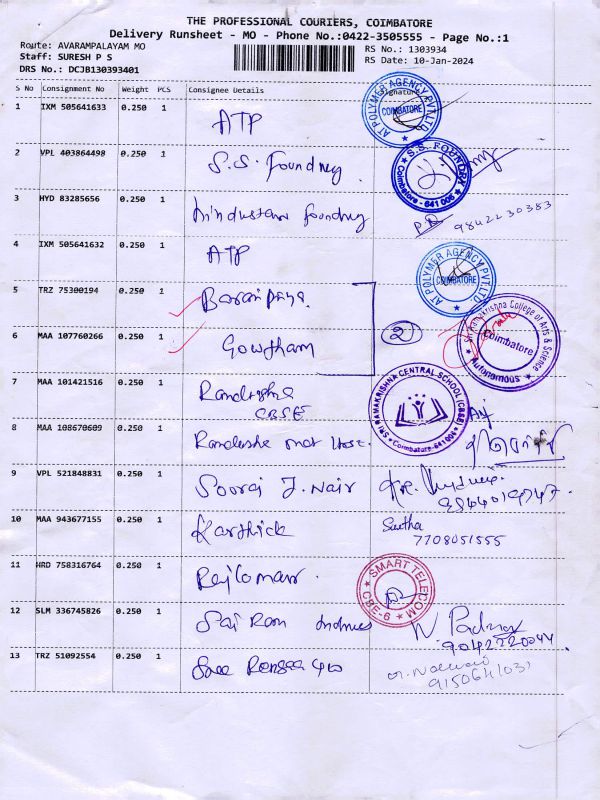 THE PROFESSIONAL COURIERS, COIMBATORE
Delivery Runsheet - MO - Phone No.:0422-3505555 - Page No.:1
Route: AVARAMPALAYAM MO
RS No.: 1303934
Staff: SURESH P S
RS Date: 10-Jan-2024
DRS No.: DCJB130393401
S No Consignment No Weight PCS Consignee Details Signature
1 IXM 505641633 0.250 1 ATP
AT POLYMER AGENCY PVT.LTD. COIMBATORE
2 VPL 403864498 0.250 1 S.S. Foundry
S.S. FOUNDRY Coimbatore - 641 006
3 HYD 83285656 0.250 1 hindustan foundry
9842230383
4 IXM 505641632 0.250 1 ATP
AT POLYMER AGENCY PVT.LTD. COIMBATORE
5 TRZ 75300194 0.250 1
6 MAA 107760266 0.250 1 Gowtham
2
Sri Ramakrishna College of Arts & Science Coimbatore Autonomous
7 MAA 101421516 0.250 1
CBSE
SRI RAMAKRISHNA CENTRAL SCHOOL (CBSE) Coimbatore-641004
8 MAA 108670609 0.250 1
9 VPL 521848831 0.250 1 Sooraj J. Nair
10 MAA 943677155 0.250 1 Karthick
7708051555
11 HRD 758316764 0.250 1
SMART TELECOM CBE-6
12 SLM 336745826 0.250 1 Sai Ram
9042220044
13 TRZ 51092554 0.250 1 Sree
9150641031